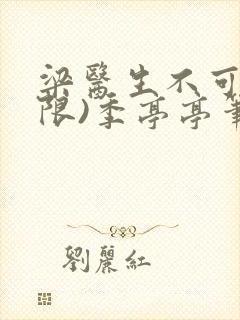 梁醫生不可
限)季亭亭筆
劉麗紅